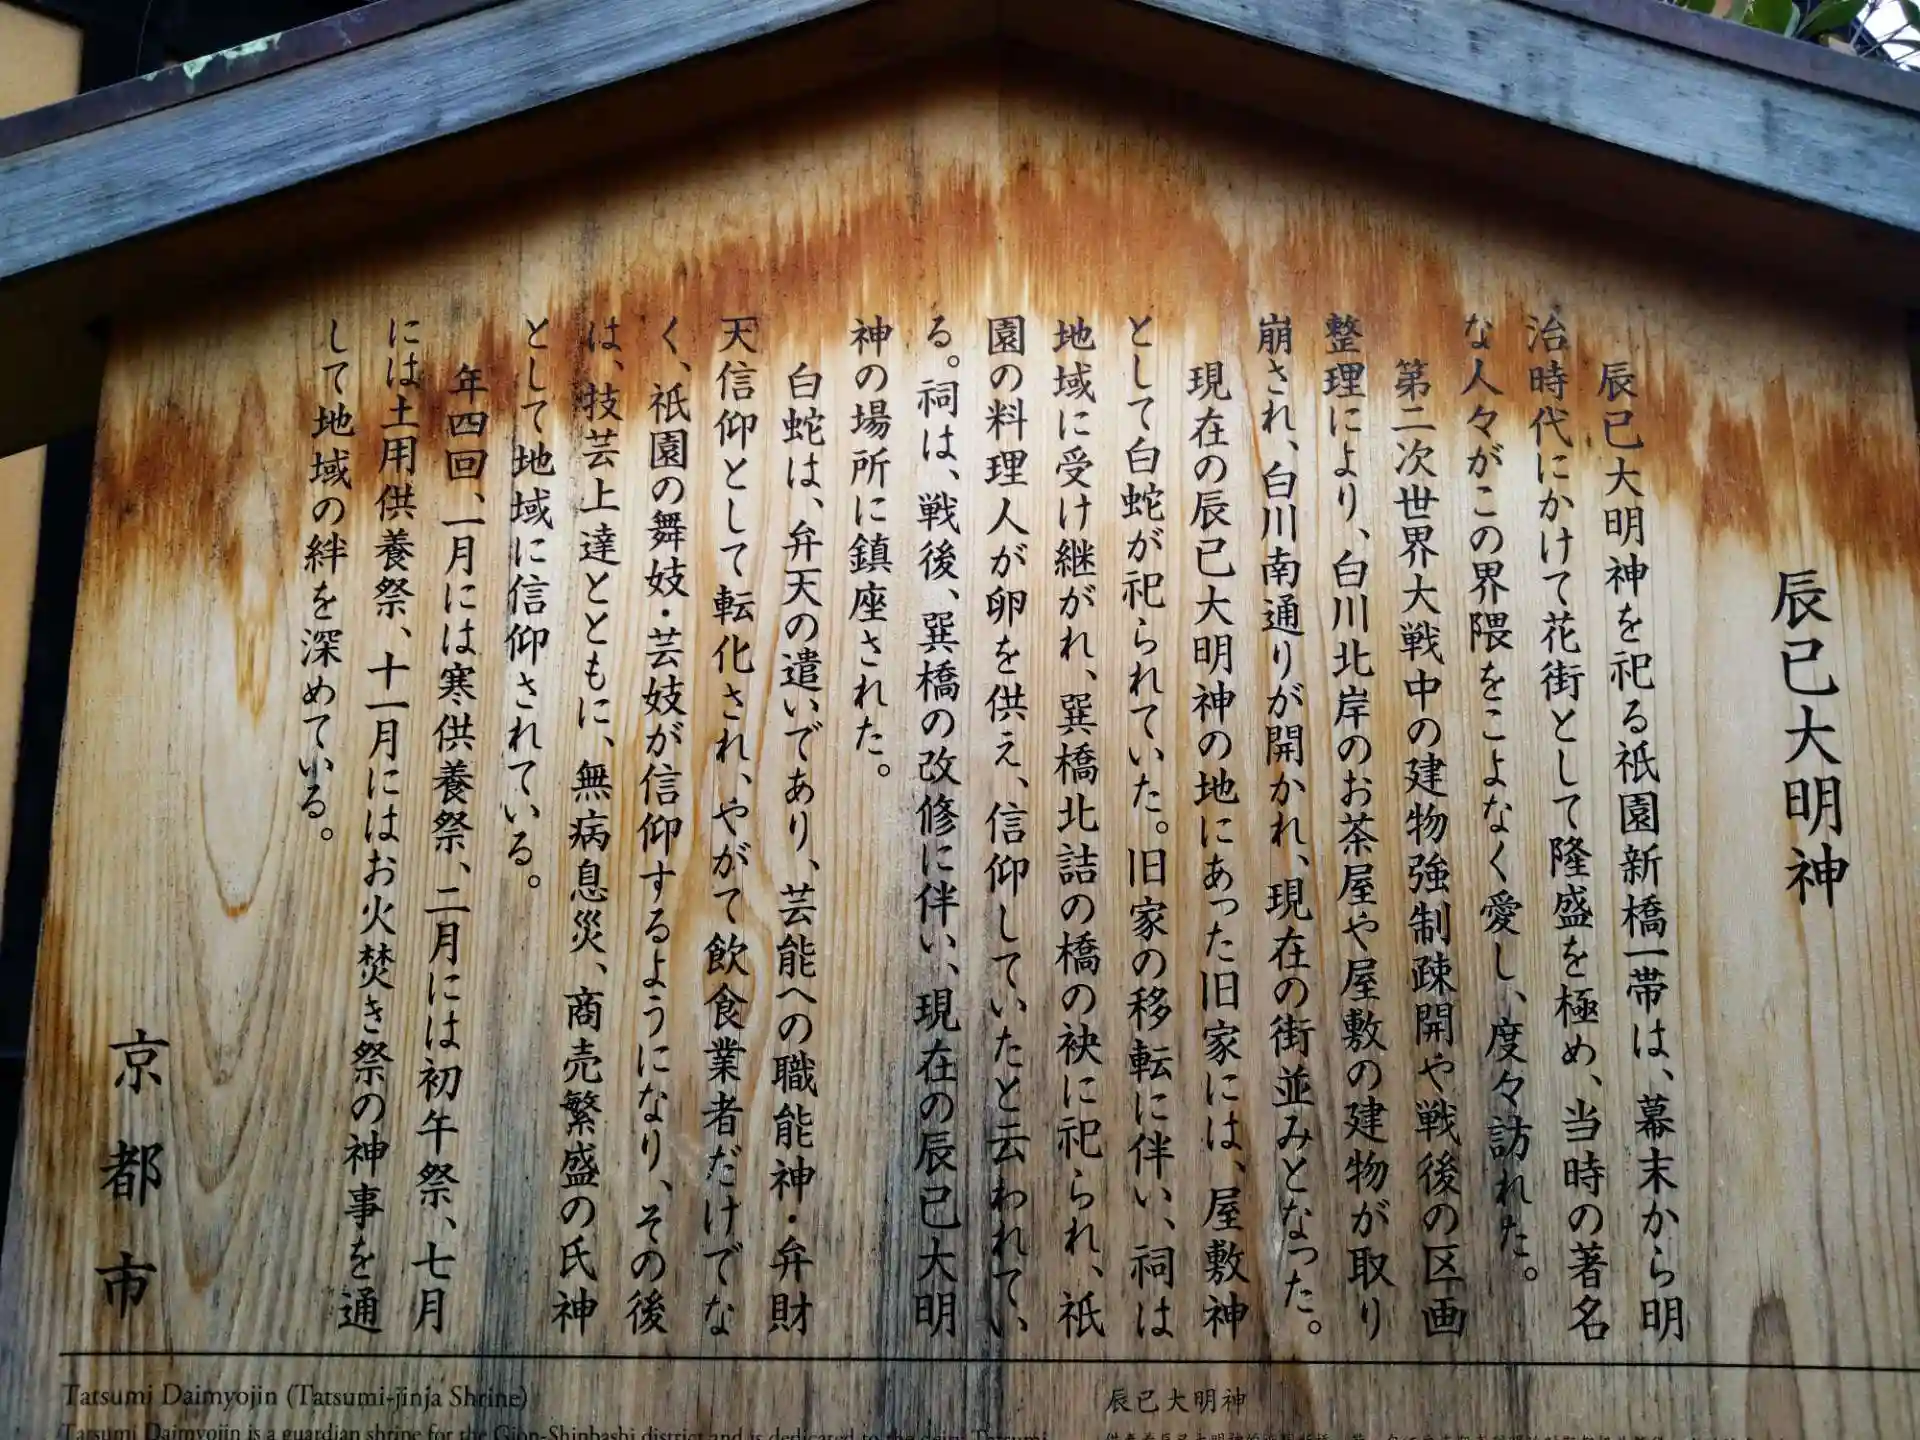 辰巳大明神
辰巳大明神を祀る祇園新橋一帯は、幕末から明
治時代にかけて花街として隆盛を極め、当時の著名
な人々がこの界隈をこよなく愛し、度々訪れた。
第二次世界大戦中の建物強制疎開や戦後の区画
整理により、白川北岸のお茶屋や屋敷の建物が取り
崩され、白川南通りが開かれ、現在の街並みとなった。
現在の辰巳大明神の地にあった旧家には、屋敷神
として白蛇が祀られていた。旧家の移転に伴い、祠は
地域に受け継がれ、巽橋北詰の橋の袂に祀られ、祇
園の料理人が卵を供え、信仰していたと云われてい
る。祠は、戦後、巽橋の改修に伴い、現在の辰巳大明
神の場所に鎮座された。
白蛇は、弁天の遣いであり、芸能への職能神・弁財
天信仰として転化され、やがて飲食業者だけでな
く、祇園の舞妓・芸妓が信仰するようになり、その後
は、技芸上達とともに、無病息災、商売繁盛の氏神
として地域に信仰されている。
年四回、一月には寒供養祭、二月には初午祭、七月
には土用供養祭、十一月にはお火焚き祭の神事を通
して地域の絆を深めている。
京都市
Tatsumi Daimyojin (Tatsumi-jinja Shrine)
Tatsumi Daimyojin is a guardian shrine for the Gion-Shinbashi district and is dedicated to the deity Tatsumi
辰巳大明神